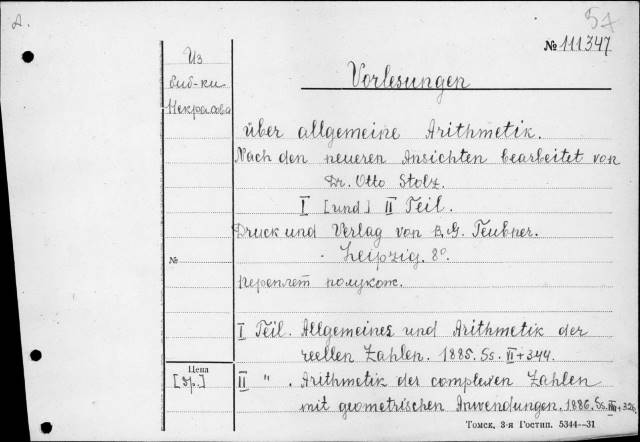 А.
54
№ 111347
Из
биб-ки
Некрасова
Vorlesungen
über allgemeine Arithmetik.
Nach den neueren Ansichten bearbeitet von
Dr. Otto Stolz.
I [und] II Teil.
Druck und Verlag von B. G. Teubner.
Leipzig. 8º.
№
переплет полукож.
I Teil. Allgemeines und Arithmetik der
reellen Zahlen. 1885. Ss. VI+344.
Цена
[2р.]
II " . Arithmetik der complexen Zahlen
mit geometrischen Anwendungen. 1886. Ss.
Томск, 3-я Гостип. 5344—31